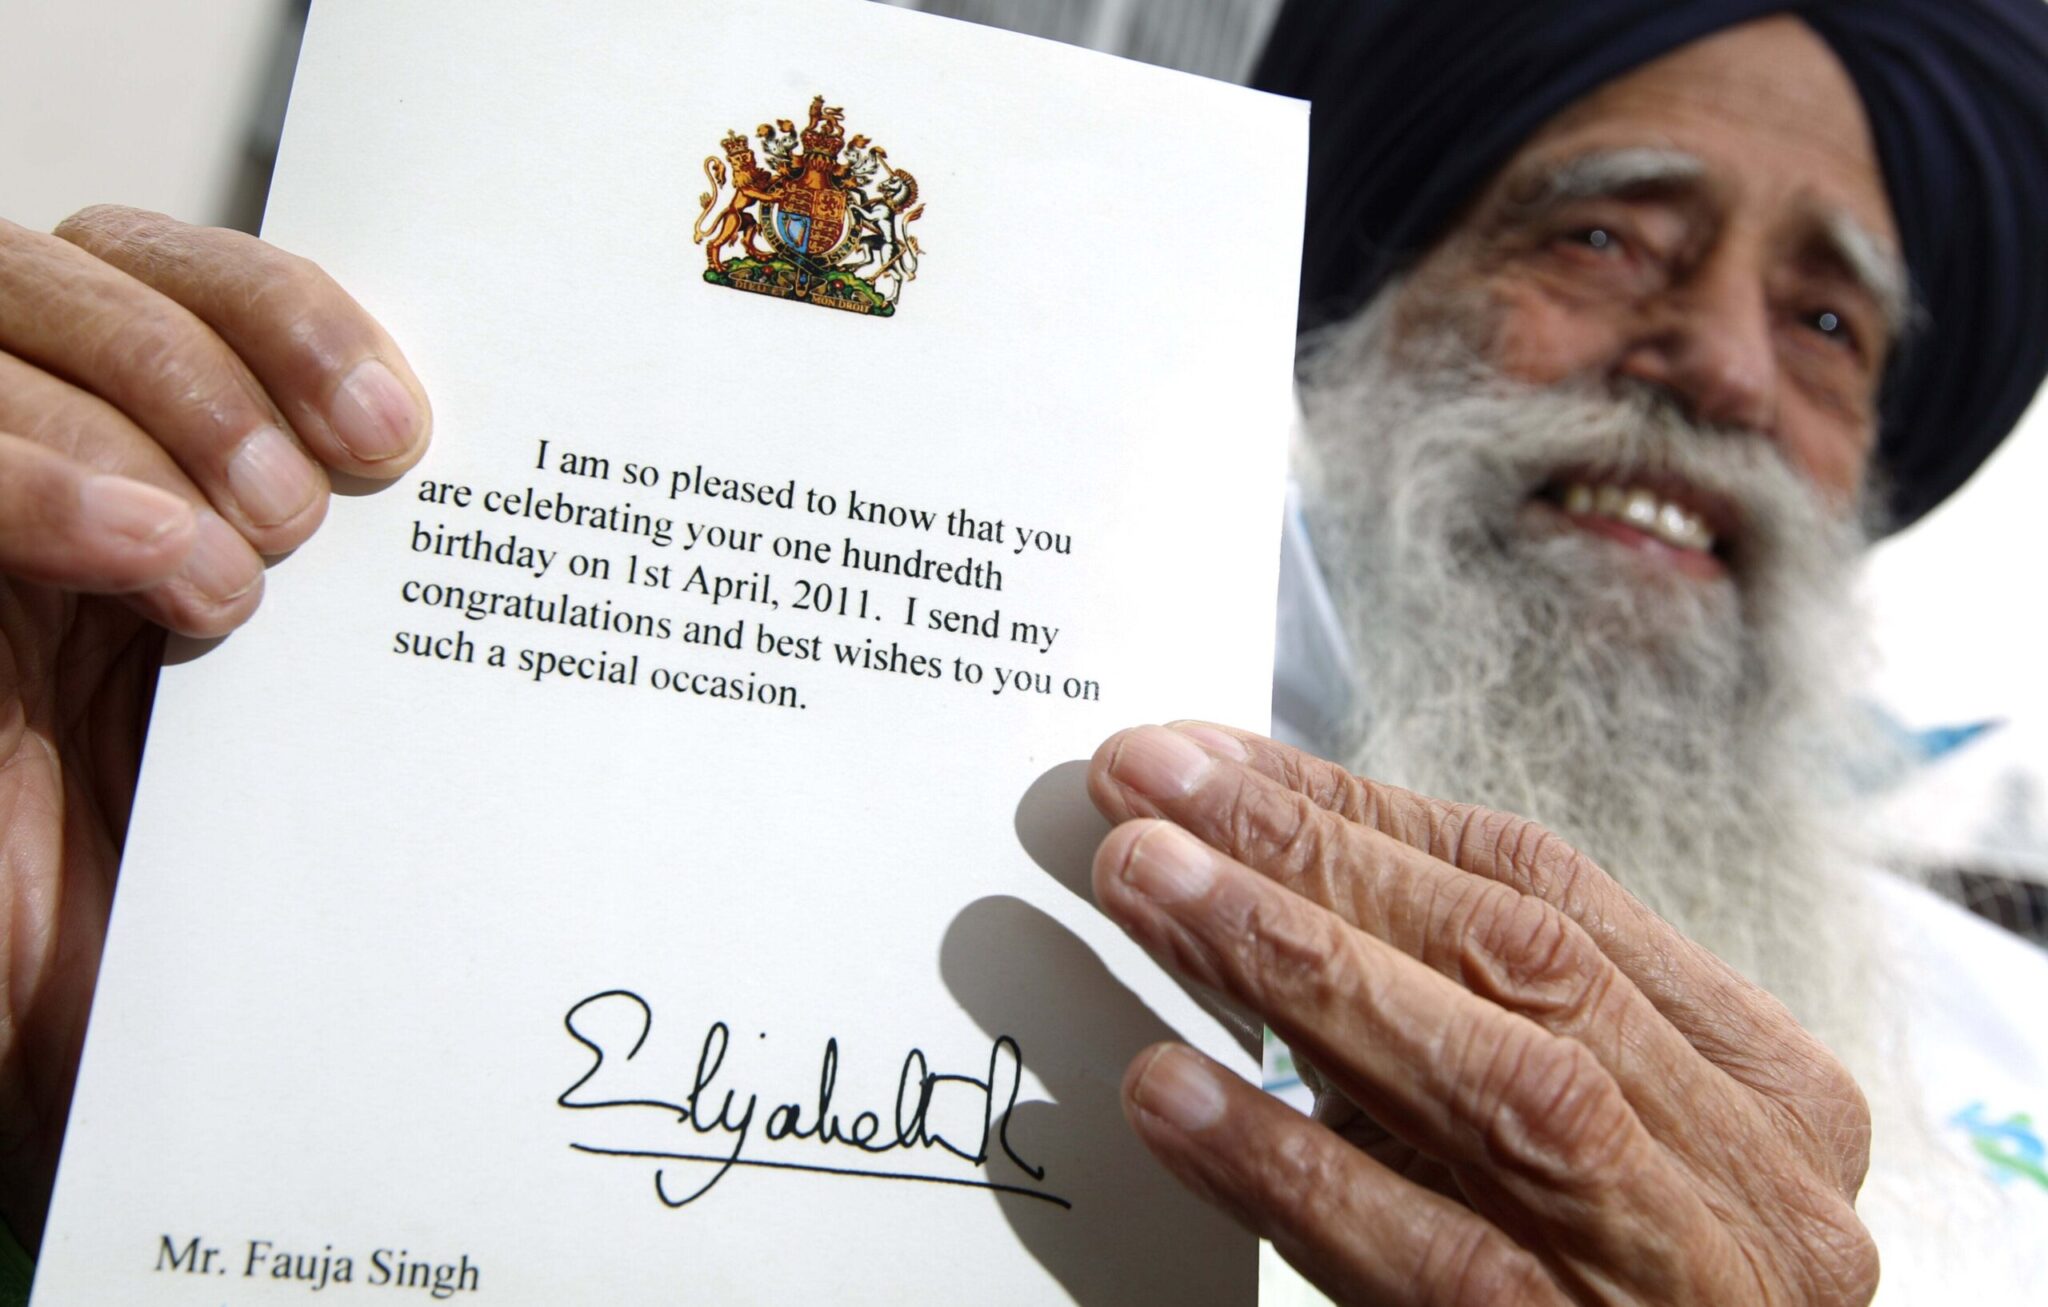 DIEU ET MON DROIT
I am so pleased to know that you
are celebrating your one hundredth
birthday on 1st April, 2011. I send my
congratulations and best wishes to you on
such a special occasion.
Elizabeth R
Mr. Fauja Singh